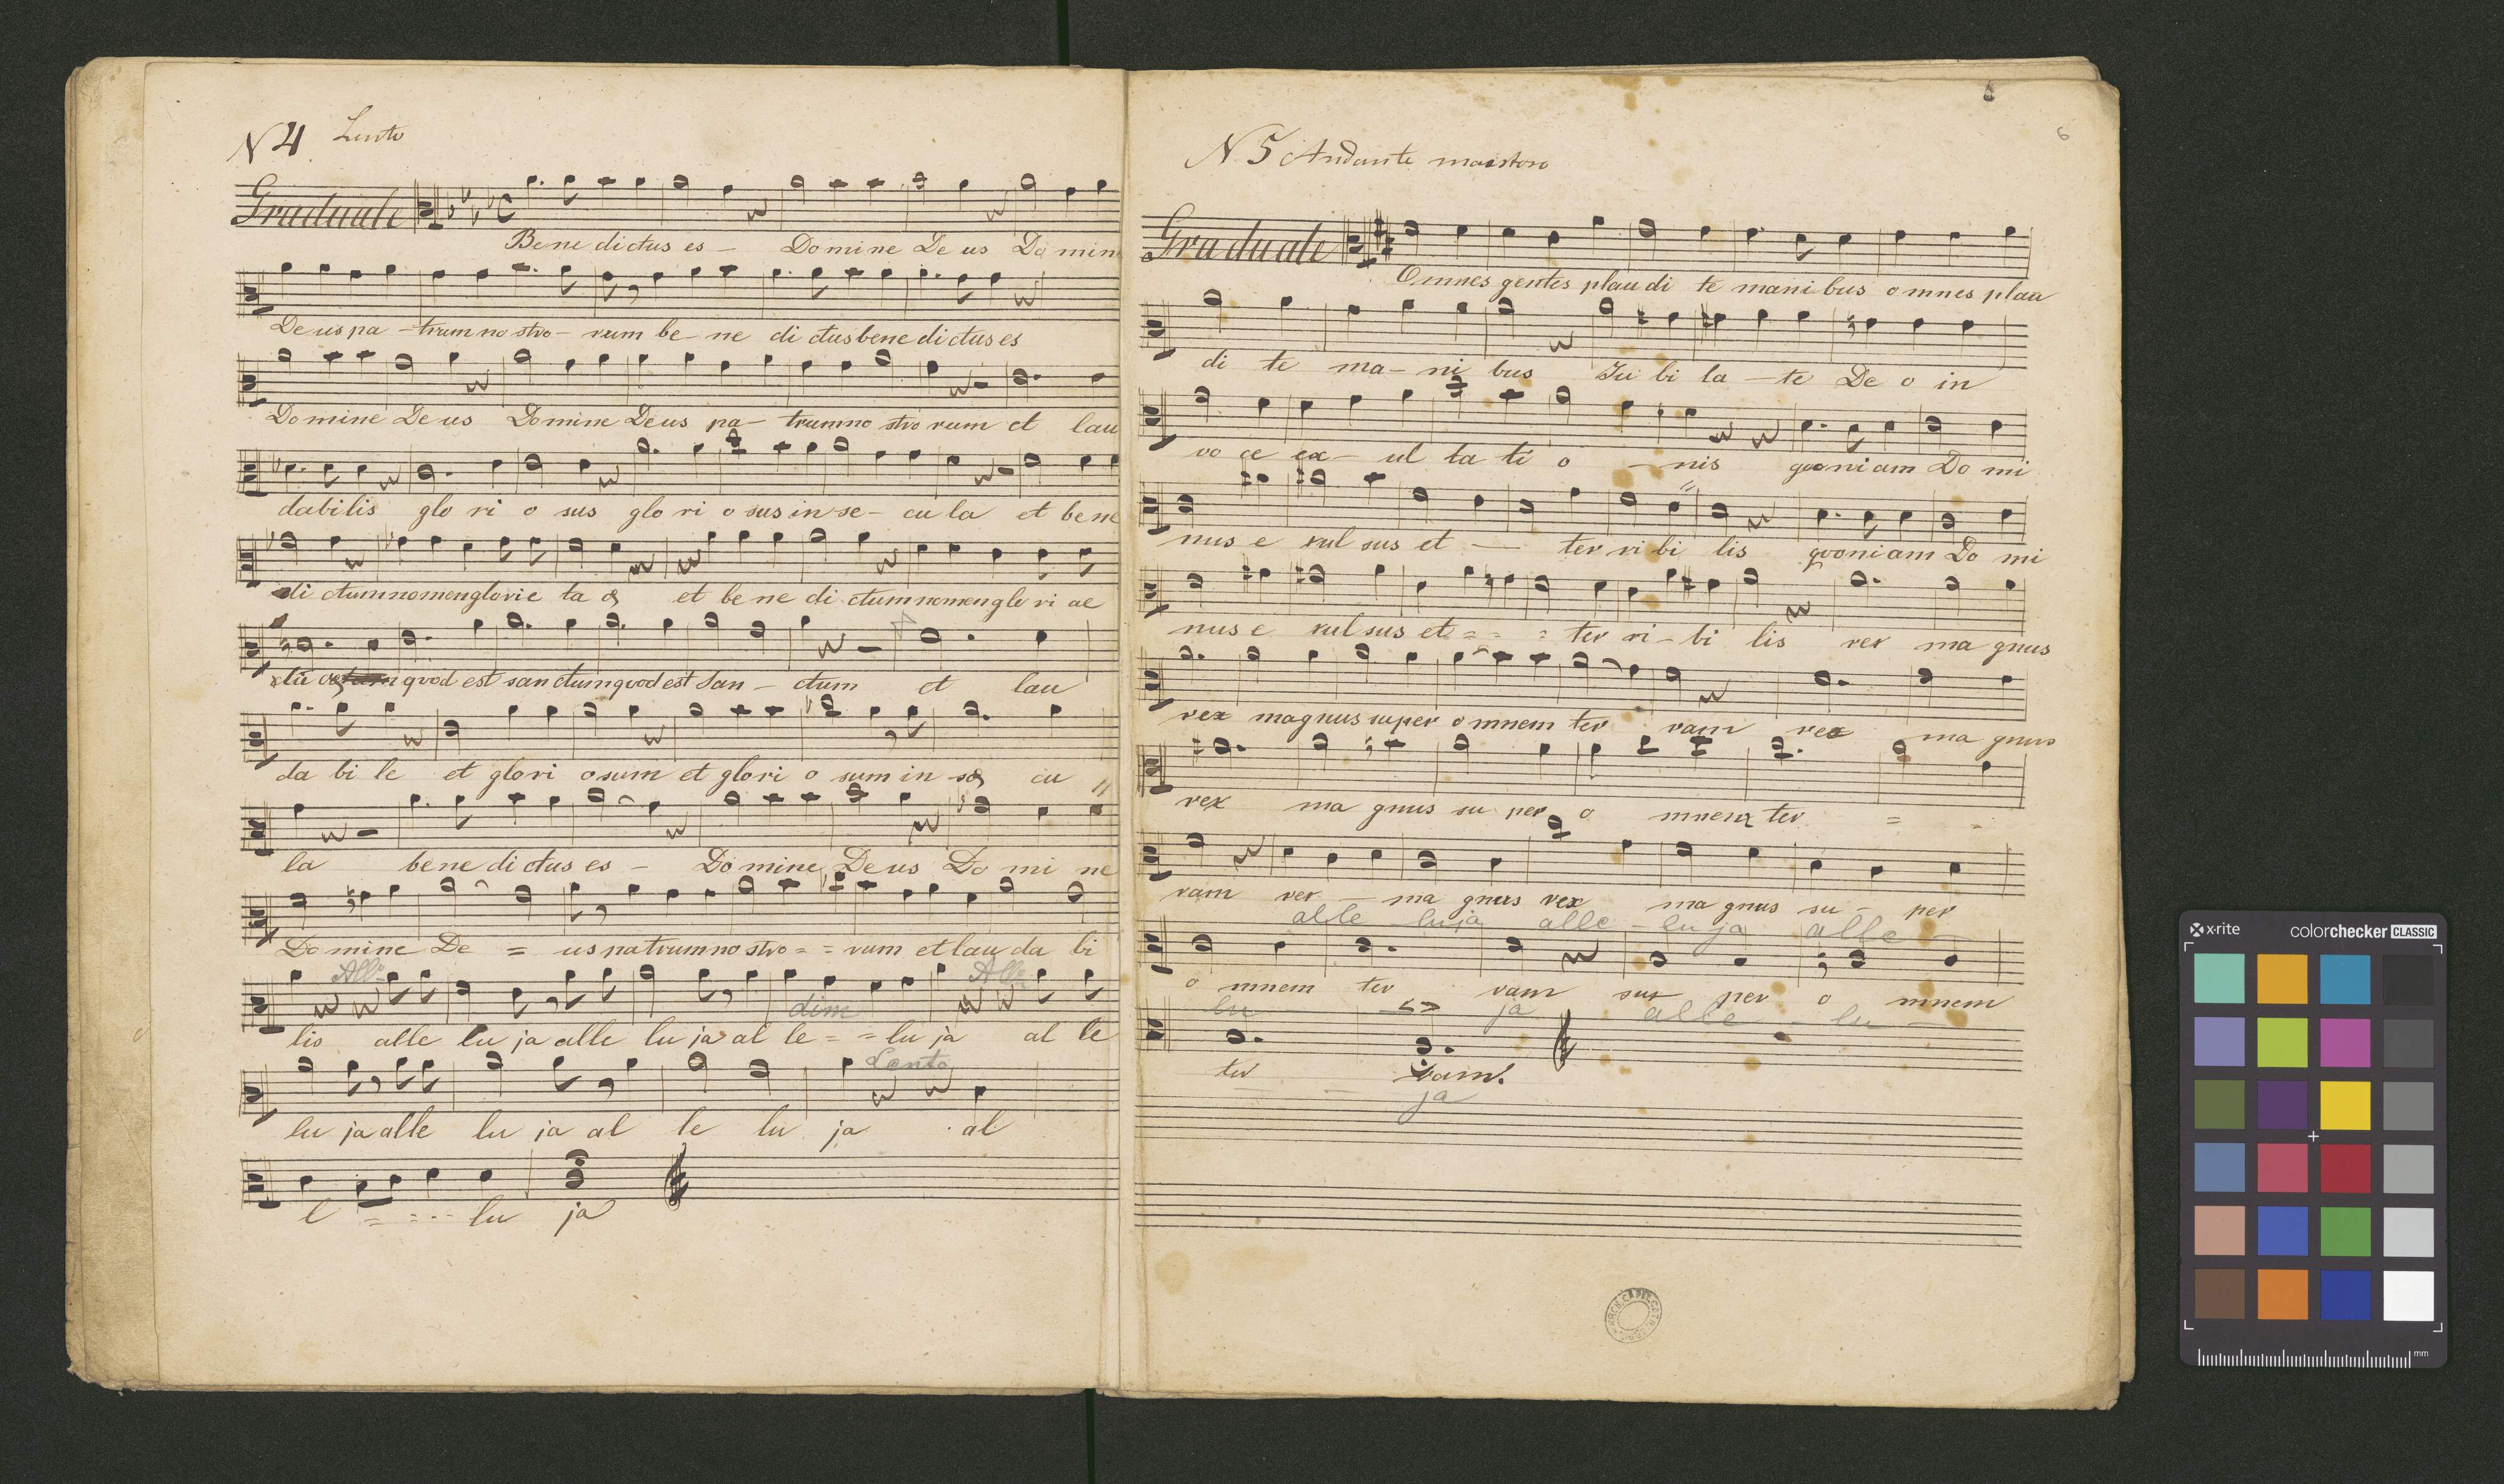 N 4 Lento
Graduale
Bene dictus es – Do mine De us Do mine
De us pa – trum no stro – rum be – ne di ctus bene di ctus es
Do mine De us Do mine De us pa – trum no stro rum et lau
dabilis glo ri o sus glo ri o sus in se – cu la et bene
di ctum nomen glorie tae et be ne di ctum nomen glo ri ae
quod est san ctum quod est San – ctum et lau
da bi le et glori osum et glori o sum in sae cu
la bene di ctus es – Do mine De us Do mi ne
Do mine De = us patrum no stro = = rum et lau da bi
Allo Allo
dim
lis alle lu ja alle lu ja al le = = lu ja al le
Lento
lu ja alle lu ja al le lu ja al
l = = - - lu ja
6
N. 5 Andante maestoso
Graduale
Omnes gentes plau di te mani bus omnes plau
di te ma – ni bus Ju bi la – te De o in
vo ce ex – ul ta ti o – nis quoniam Do mi
nus e xul sus et – ter ri bi lis quoniam Do mi
nus e xul sus et = = = ter ri – bi lis rex ma gnus
rex magnus super omnem ter ram rex ma gnus
rex ma gnus su per o mnem ter = -
ram rex – ma gnus rex ma gnus su – per
alle – luja alle – lu ja alle –
o mnem ter ram su per o mnem
lu < > ja alle lu –
ter ram.
ja
x·rite colorchecker CLASSIC
mm